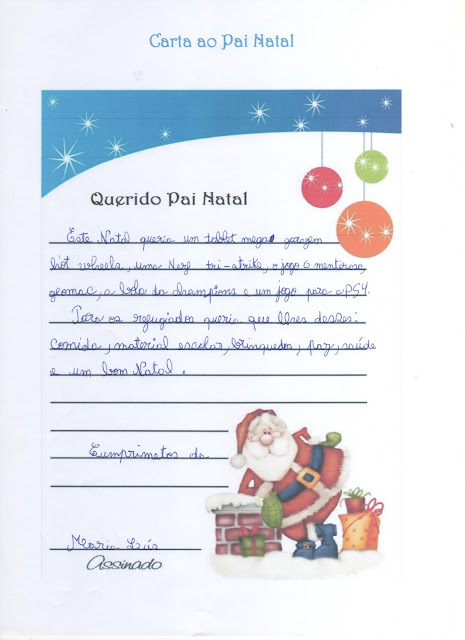 Carta ao Pai Natal
Querido Pai Natal
Este Natal queria um tablet mega garagem
hot wheels, uma Nerf tri-strike, o jogo o mentiroso,
geomac, a bola da champions e um jogo para a PS4.
Para os refugiados queria que lhes desses:
Comida, material escolar, brinquedos, paz, saúde
e um bom Natal.
Cumprimetos da
Maria Luís
Assinado